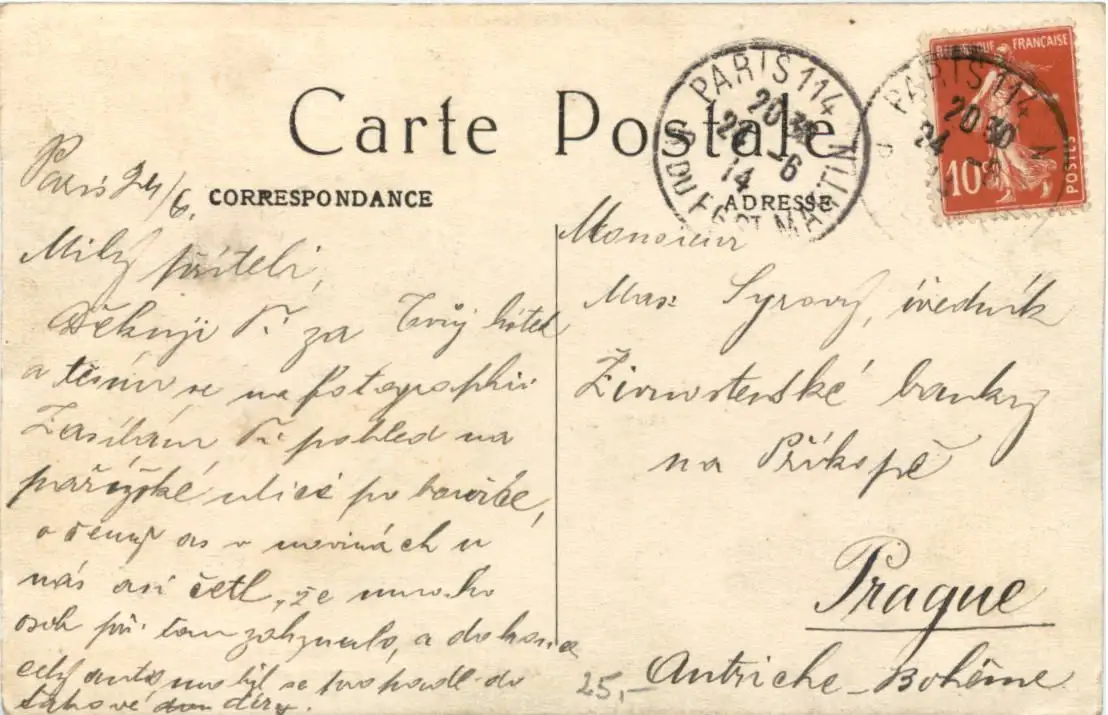 Carte Postale
CORRESPONDANCE
ADRESSE
PARIS 114
20 30
24 -6
14
RDU FG ST MARTIN
PARIS 114
20 30
24 -6
REPUBLIQUE FRANÇAISE
10c
POSTES
Paris 24/6.
Milý příteli,
Děkuji Ti za Tvůj lístek
a těším se na fotographii
Zasílám Ti pohled na
pařížské ulici po bouřce,
o čemž as v novinách u
nás asi četl, že mnoho
osob při tom zahynulo, a dokonce
celý automobil se propadl do
takové díry.
Monsieur
Max Syrový, úředník
Živnostenské banky
na Příkopě
Prague
Autriche-Bohême
25,-